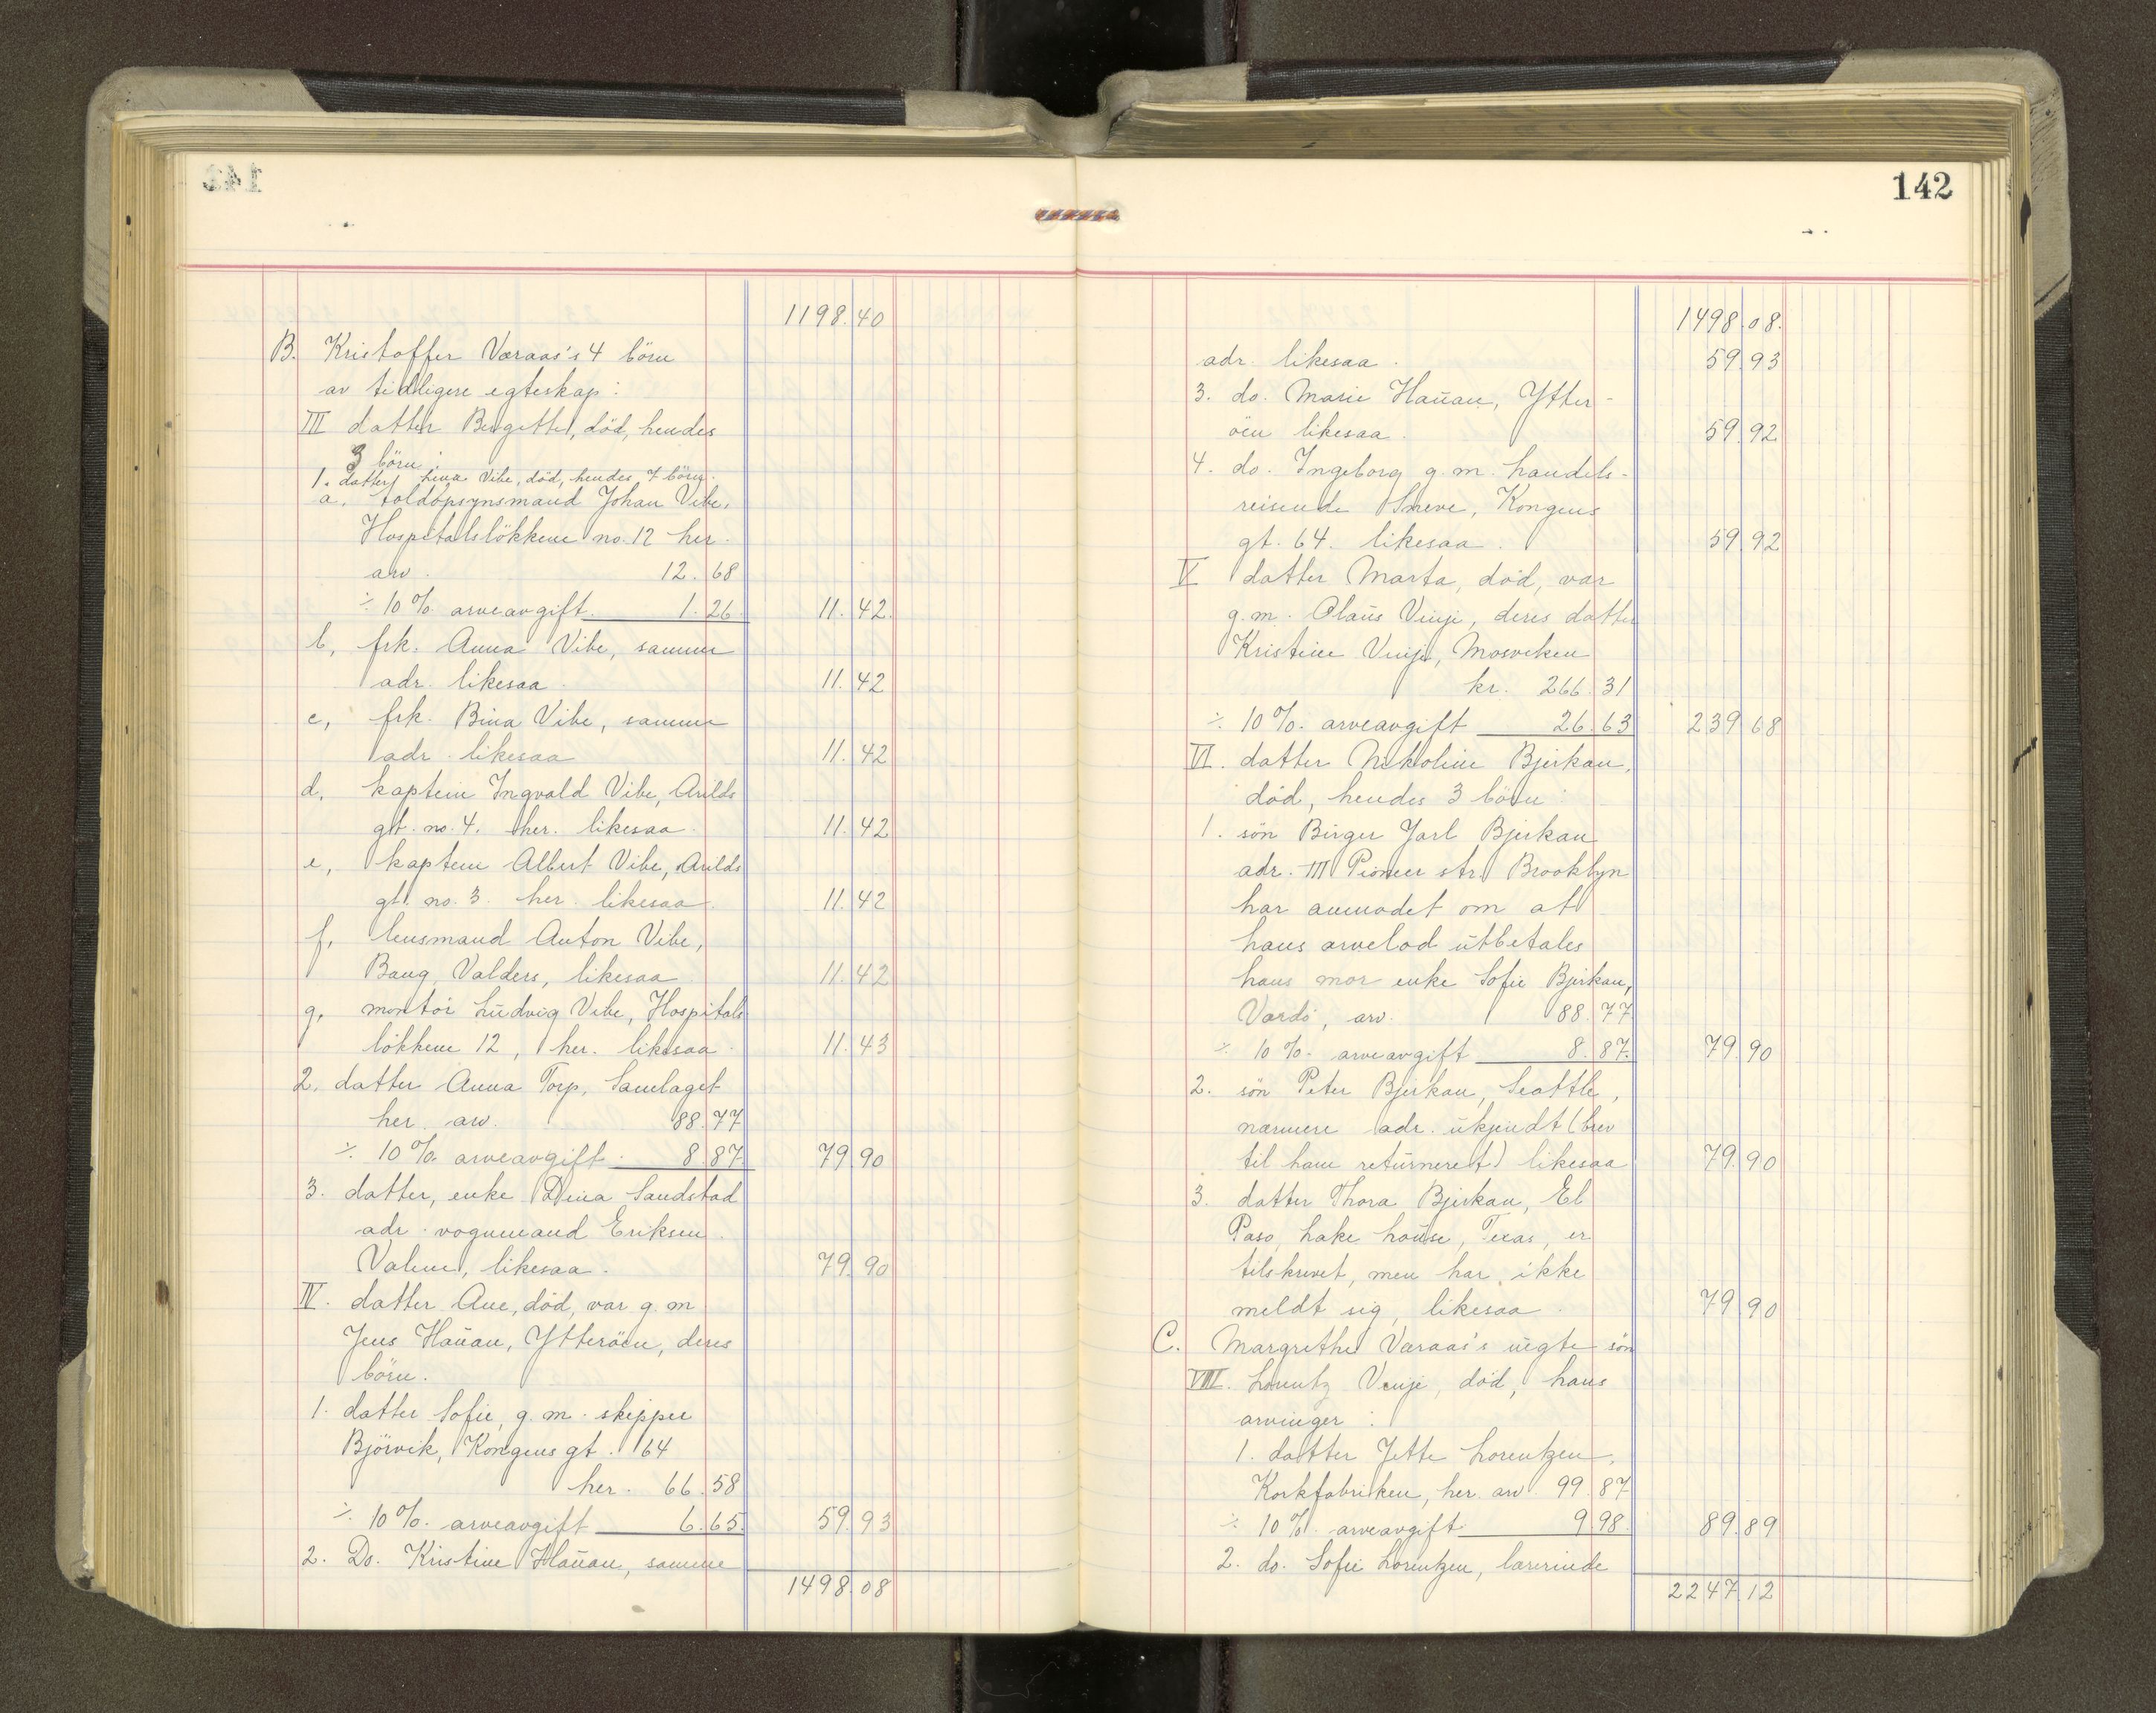 1198.40
B. Kristoffer Væraas's 4 börn
av tidligere egteskap:
III datter Bergitte, död, hendes
3 börn:
1. datter Lina Vibe, död, hendes 7 börn.
a. toldopsynsmand Johan Vibe,
Hospitalslökkene no. 12 her.
arv. 12.68
÷ 10% arveavgift. 1.26. 11.42.
b, frk. Anna Vibe, samme
adr. likesaa. 11.42
c, frk. Bina Vibe, samme
adr. likesaa 11.42
d, kaptein Ingvald Vibe, Arilds
gt. no. 4. her. likesaa. 11.42
e, kaptein Albert Vibe, Arilds
gt. no. 3. her. likesaa. 11.42
f, lensmand Anton Vibe,
Bang, Valders, likesaa. 11.42
g, montör Ludvig Vibe, Hospitals
lökkene 12, her. likesaa. 11.43
2. datter Anna Torp, Samlaget
her arv. 88.77
÷ 10% arveavgift. 8.87. 79.90
3. datter, enke Dina Sandstad
adr. vognmand Eriksen.
Valene, likesaa. 79.90
IV. datter Ane, död, var g.m
Jens Hauan, Ytteröen, deres
börn.
1. datter Sofie, g.m. skipper
Björvik, Kongens gt. 64
her. 66.58
÷ 10%. arveavgift 6.65. 59.93
2. Do. Kristine Hauan, samme
1498.08
142
1498.08.
adr. likesaa. 59.93
3. do. Marie Hauan, Ytter-
öen likesaa. 59.92
4. do. Ingeborg g.m. handels-
reisende Sneve, Kongens
gt. 64. likesaa. 59.92
V datter Marta, död, var
g.m. Olaus Vinje, deres datter
Kristine Vinje, Mosviken
kr. 266.31
÷ 10%. arveavgift 26.63 239.68
VI. datter Nikoline Bjerkan,
död, hendes 3 börn:
1. sön Birger Jarl Bjerkan
adr. 111 Pioneer str. Brooklyn
har anmodet om at
hans arvelod utbetales
hans mor enke Sofie Bjerkan,
Vardö, arv. 88.77
÷ 10%. arveavgift 8.87. 79.90
2. sön Peter Bjerkan, Seattle,
nærmere adr. ukjendt (brev
til ham returneret) likesaa 79.90
3. datter Thora Bjerkan, El
Paso, Lake house, Texas, er
tilskrevet, men har ikke
meldt sig, likesaa. 79.90
C. Margrethe Væraas's uegte sön
VIII. Lorentz Venje, död, hans
arvinger:
1. datter Jette Lorentzen,
Korkfabriken, her arv. 99.87
÷ 10%. arveavgift. 9.98. 89.89
2. do. Sofie Lorentzen, lærerinde
2247.12